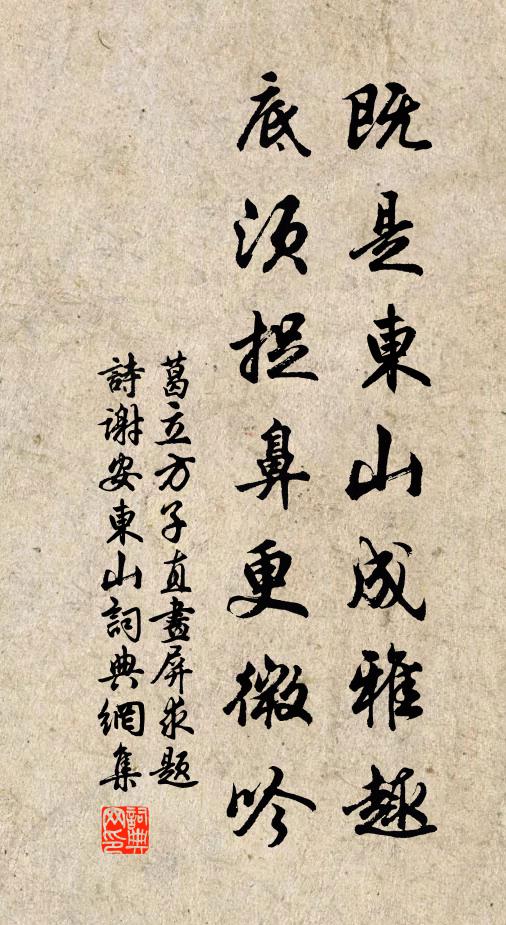 既是東山成雅趣
底須捉鼻更微吟
葛立方子直畫屏求題
詩謝安東山詞典網集
詞典
网印